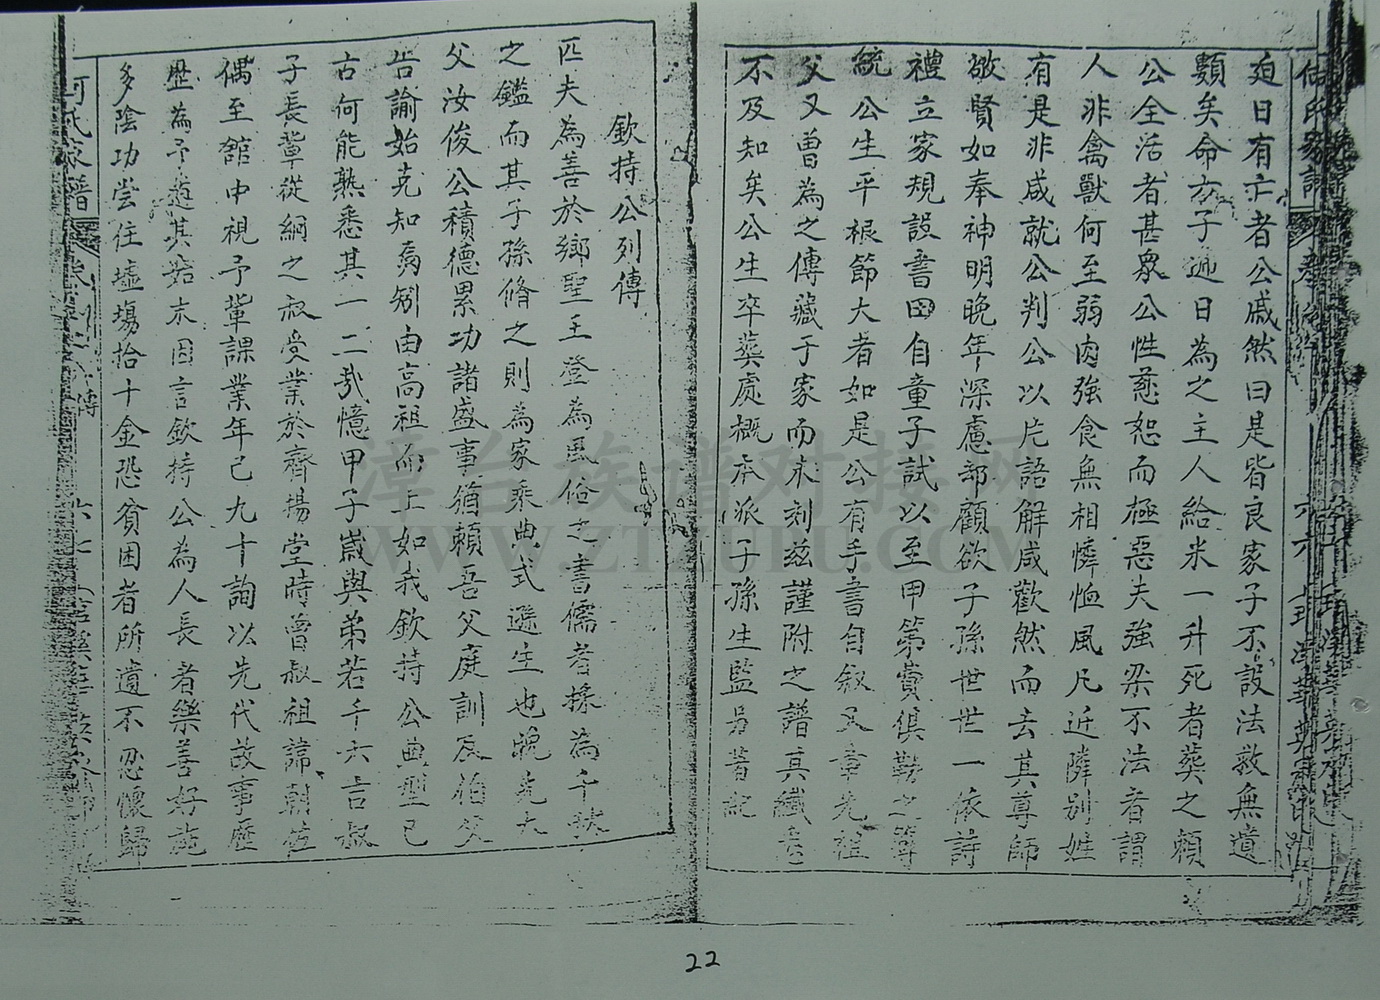 迫日有亡者公戚然曰是皆良家子不設法救無遺
類矣命次子逓日為之主人給米一升死者葬之頼
公全活者甚衆公性慈恕而極惡夫強梁不法者謂
人非禽獸何至弱肉強食無相憐恤風凡近隣别姓
有是非咸就公判公以片語解咸歡然而去其尊師
敬賢如奉神明晚年深慮部顧欲子孫世世一依詩
禮立家規設書田自童子試以至甲第賚俱勤之
統公生平根節大者如是公有手書自叙又章先祖
父又曽為之傳藏于家而未刻兹謹附之譜真纎悉
不及知矣公生卒葬處概本派子孫生監另著紀
欽持公列傳
匹夫為善於鄉聖王登為風俗之書儒者採為千秋
之鑑而其子孫脩之則為家乘典式遜生也晚先大
父汝俊公積德累功諸盛事猶頼吾父庭訓及伯父
告諭始克知焉矧由高祖而上如我欽持公典型已
古何能熟悉其一二哉憶甲子嵗與弟若千六言叔
子長鞏從綱之叔受業於齊揚堂時曽叔祖諱朝佐
偶至館中視予輩課業年已九十詢以先代故事歷
歴為予道其始末因言欽持公為人長者樂善好施
多陰功尝往墟塲拾十金恐貧困者所遺不忍懷歸
何氏家譜
六七
潭台族谱对接网
WWW.ZTZUPU.COM
22